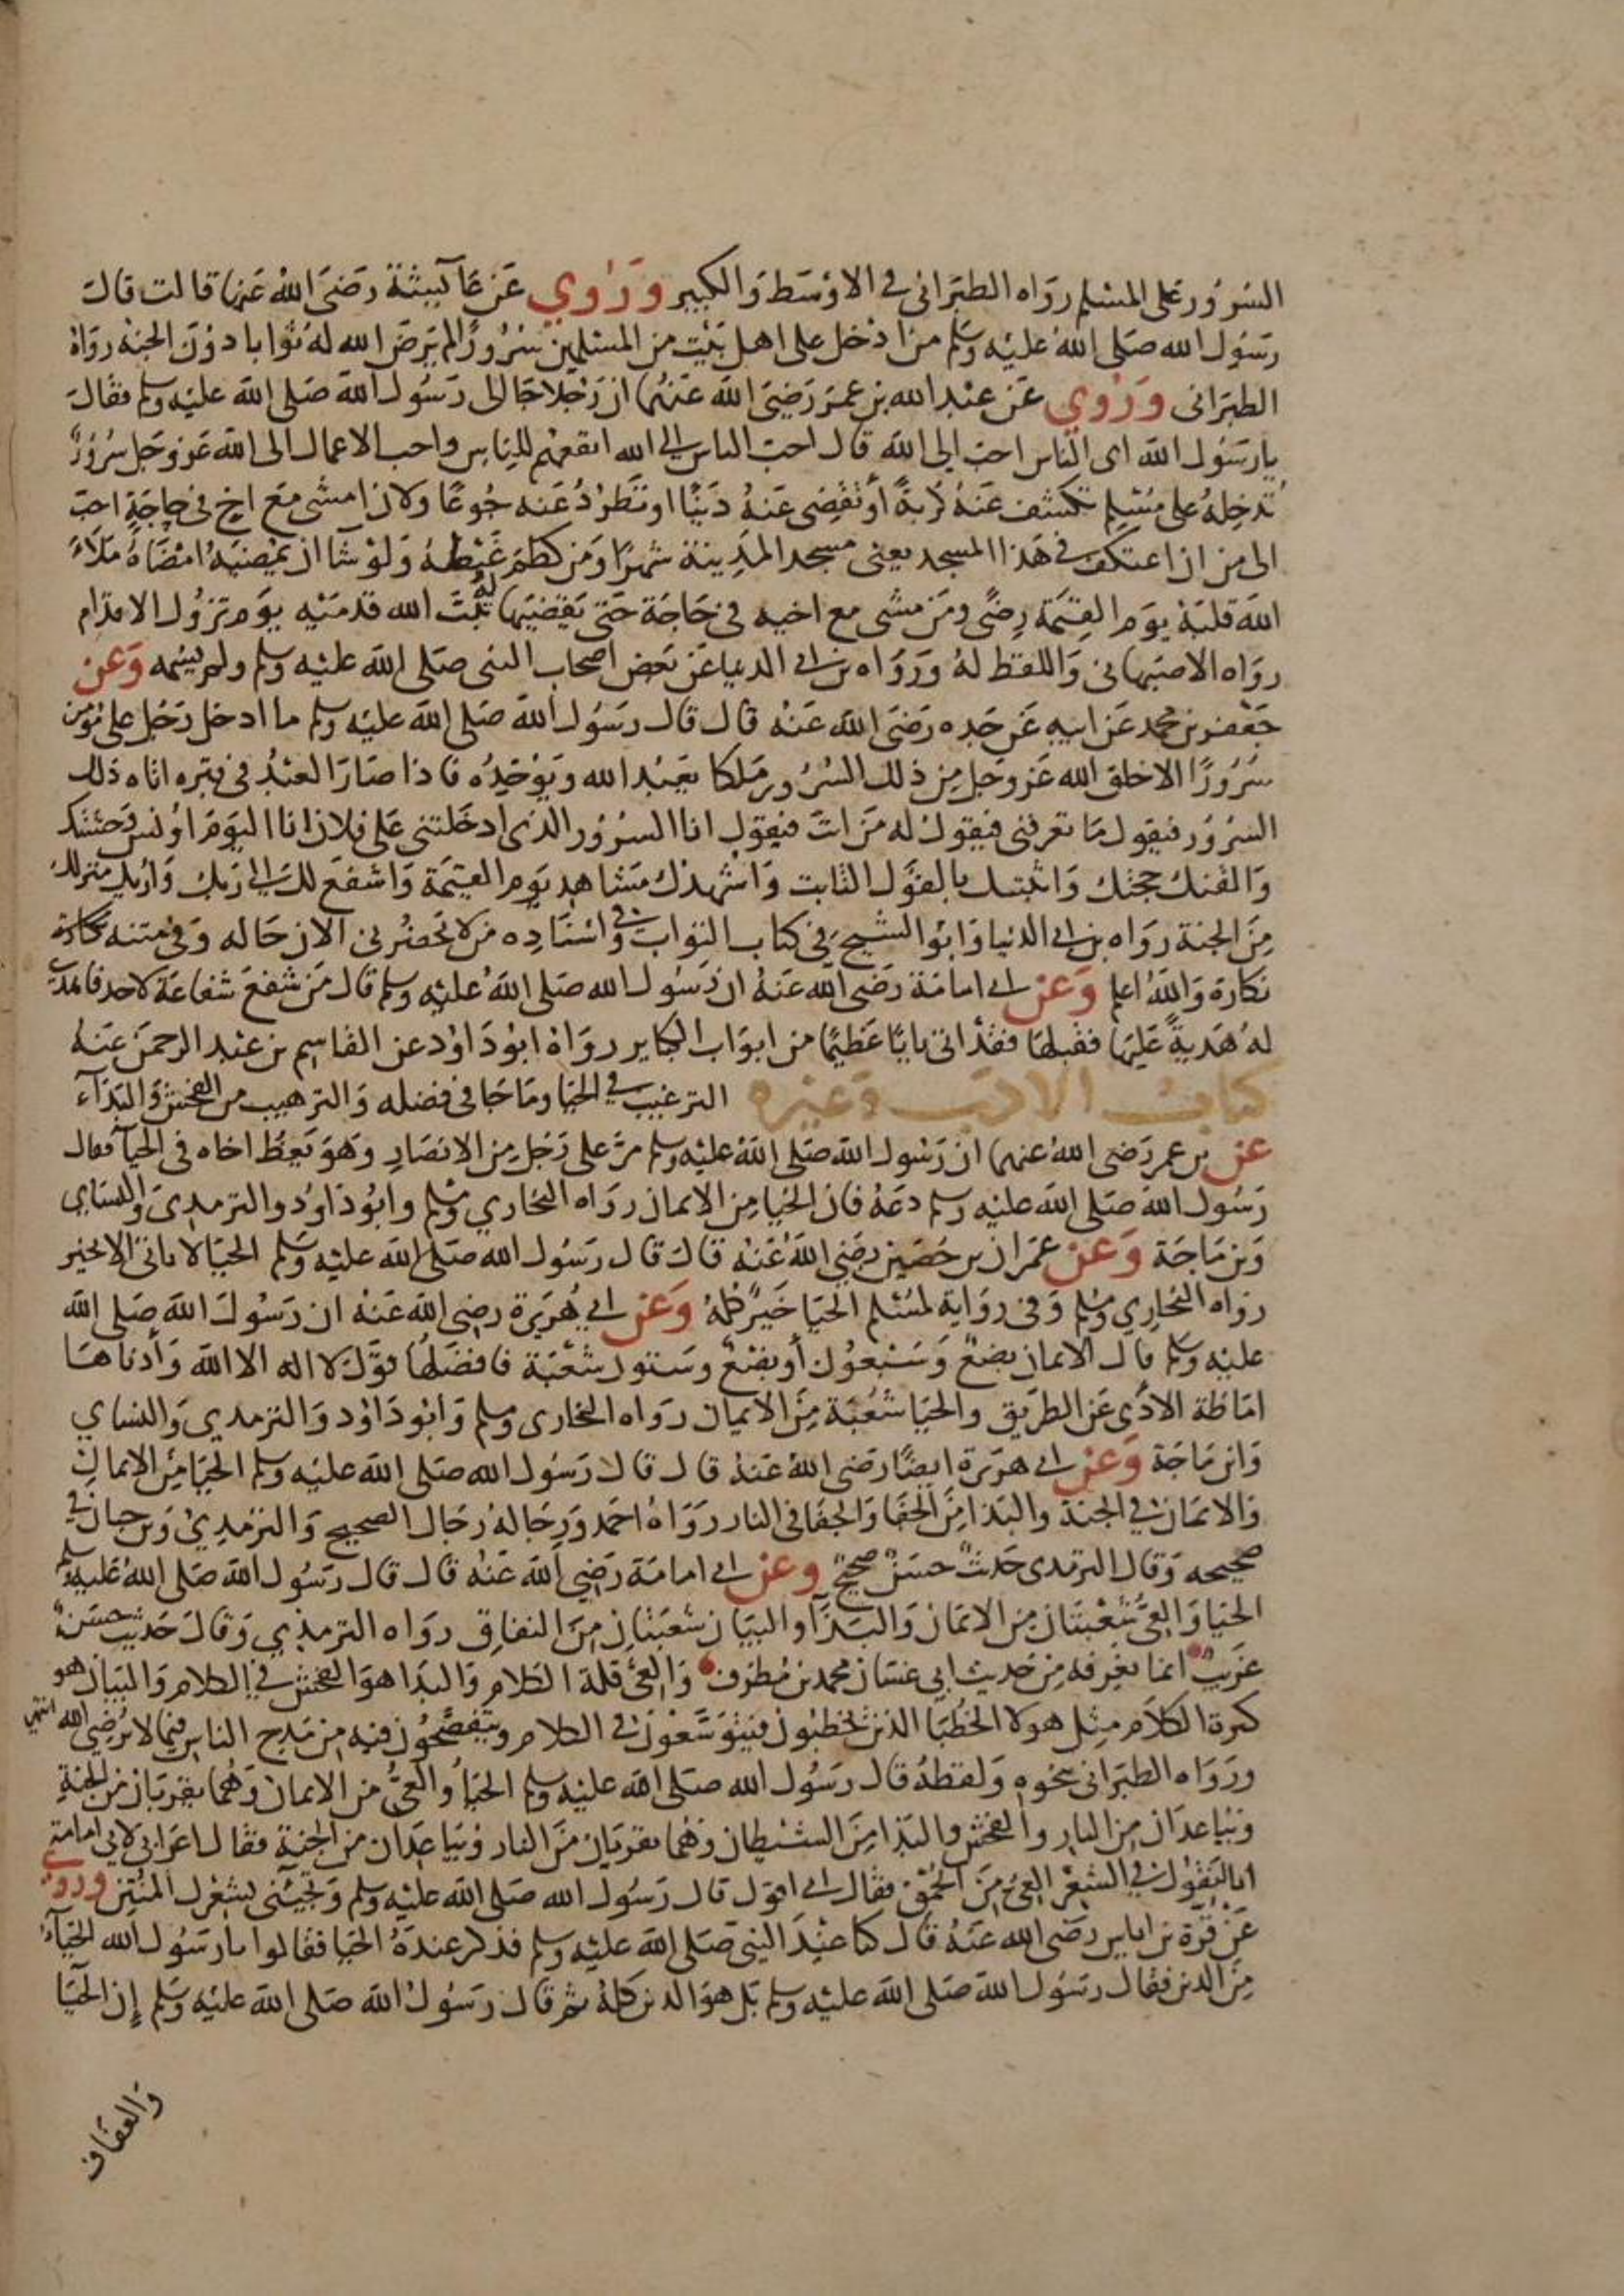 السرور على المسلم رواه الطبراني في الاوسط والكبير وروي عن عآيشة رضي الله عنها قالت قال
رسول الله صلى الله عليه وسلم من ادخل على اهل بيت من المسلمين سرورًا لم يرض الله له ثوابا دون الجنة رواه
الطبراني وروي عن عبد الله بن عمر رضي الله عنهما ان رجلا جا الى رسول الله صلى الله عليه وسلم فقال
يا رسول الله اى الناس احب الى الله قال احب الناس الى الله انفعهم للناس واحب الاعمال الى الله عز وجل سرور
تدخله على مسلم تكشف عنه كربة أو تقضى عنه دينًا او تطرد عنه جوعًا ولان امشى مع اخ في حاجة احب
الى من ان اعتكف في هذا المسجد يعنى مسجد المدينة شهرًا ومن كظم غيظه ولو شا ان يمضيه امضاه ملأ
الله قلبه يوم القيمة رضًى ومن مشى مع اخيه في حاجة حتى يقضيها له ثبت الله قدميه يوم تزول الاقدام
رواه الاصبهاني واللفظ له ورواه بن ابي الدنيا عن بعض اصحاب النبي صلى الله عليه وسلم ولم يسمه وعن
جعفر بن محمد عن ابيه عن جده رضي الله عنه قال قال رسول الله صلى الله عليه وسلم ما ادخل رجل على مؤمن
سرورًا الا خلق الله عز وجل من ذلك السرور ملكا يعبد الله ويوحده فاذا صار العبد في قبره اتاه ذلك
السرور فيقول ما تعرفني فيقول له من انت فيقول انا السرور الذي ادخلتني على فلان انا اليوم اونس وحشتك
والقنك حجتك واثبتك بالقول الثابت واشهدك مشاهد يوم القيمة واشفع لك الى ربك واريك منزلك
من الجنة رواه بن ابي الدنيا وابو الشيخ في كتاب الثواب وفي اسناده من لا يحضرني الان حاله وفي متنه نكارة
نكارة والله اعلم وعن ابي امامة رضي الله عنه ان رسول الله صلى الله عليه وسلم قال من شفع شفاعة لاحد فاهدى
له هدية عليها فقبلها فقد اتى بابًا عظيمًا من ابواب الكباير رواه ابو داود عن القاسم بن عبد الرحمن عنه
كتاب الادب وغيره الترغيب في الحيا وما جا في فضله والترهيب من الفحش والبذآء
عن بن عمر رضي الله عنهما ان رسول الله صلى الله عليه وسلم مر على رجل من الانصار وهو يعظ اخاه في الحيآ فقال
رسول الله صلى الله عليه وسلم دعه فان الحيا من الايمان رواه البخاري ومسلم وابو داود والترمدى والنساي
وبن ماجة وعن عمران بن حصين رضي الله عنه قال قال رسول الله صلى الله عليه وسلم الحيا لا ياتي الا بخير
رواه البخاري ومسلم وفى رواية لمسلم الحيا خير كله وعن ابي هريرة رضي الله عنه ان رسول الله صلى الله
عليه وسلم قال الايمان بضع وسبعون أو بضع وستون شعبة فافضلها قول لا اله الا الله وأدناها
اماطة الاذى عن الطريق والحيا شعبة من الايمان رواه البخارى ومسلم وابو داود والترمدي والنساي
وابن ماجة وعن ابي هريرة ايضًا رضي الله عنه قال قال رسول الله صلى الله عليه وسلم الحيا من الايمان
والايمان في الجنة والبذا من الجفا والجفا في النار رواه احمد ورجاله رجال الصحيح والترمدي وبن حبان في
صحيحه وقال الترمدى حديث حسن صحيح وعن ابي امامة رضي الله عنه قال قال رسول الله صلى الله عليه وسلم
الحيا والعي شعبتان من الايمان والبذآ والبيان شعبتان من النفاق رواه الترمذي وقال حديث حسن
غريب انما نعرفه من حديث ابي غسان محمد بن مطرف والعي قلة الكلام والبذا هو الفحش في الكلام والبيان هو
كثرة الكلام مثل هولا الخطبا الذين يخطبون فيتوسعون في الكلام ويتفصحون فيه من مدح الناس فيما لا يرضي الله انتهى
ورواه الطبراني بنحوه ولفظه قال رسول الله صلى الله عليه وسلم الحيا والعي من الايمان وهما يقربان من الجنة
ويباعدان من النار والفحش والبذا من الشيطان وهما يقربان من النار ويباعدان من الجنة فقال اعرابي لابي امامة
انا لنقول في الشعر العي من الحمق فقال اني اقول قال رسول الله صلى الله عليه وسلم وتجيئني بشعرك المنتن وروي
عن قرة بن اياس رضي الله عنه قال كنا عند النبي صلى الله عليه وسلم فذكر عنده الحيا فقالوا يا رسول الله الحيآ
من الدين فقال رسول الله صلى الله عليه وسلم بل هو الدين كله ثم قال رسول الله صلى الله عليه وسلم إن الحيا
والعفاف